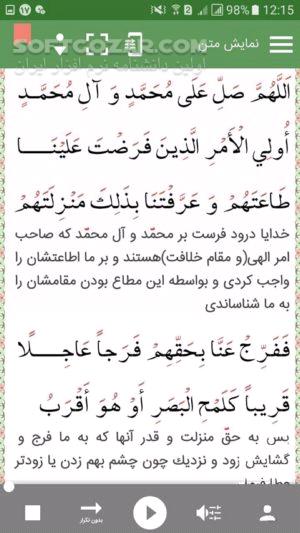 98% 12:15
SOFTGOZAR.COM
نمایش متن
اولین دانشنامه نرم افزار ایران
اَللّٰهُمَّ صَلِّ عَلىٰ مُحَمَّدٍ وَ آلِ مُحَمَّدٍ
أُولِي الْأَمْرِ الَّذينَ فَرَضْتَ عَلَيْنَا
طَاعَتَهُمْ وَ عَرَّفْتَنَا بِذٰلِكَ مَنْزِلَتَهُمْ
خدایا درود فرست بر محمّد و آل محمّد که صاحب
امر الهی(و مقام خلافت)هستند و بر ما اطاعتشان را
واجب کردی و بواسطه این مطاع بودن مقامشان را
به ما شناساندی
فَفَرِّجْ عَنَّا بِحَقِّهِمْ فَرَجاً عَاجِلًا
قَرِيباً كَلَمْحِ الْبَصَرِ أَوْ هُوَ أَقْرَبُ
پس به حقّ منزلت و قدر آنها که به ما فرج و
گشایش زود و نزدیک چون چشم بهم زدن یا زودتر
بدون تکرار